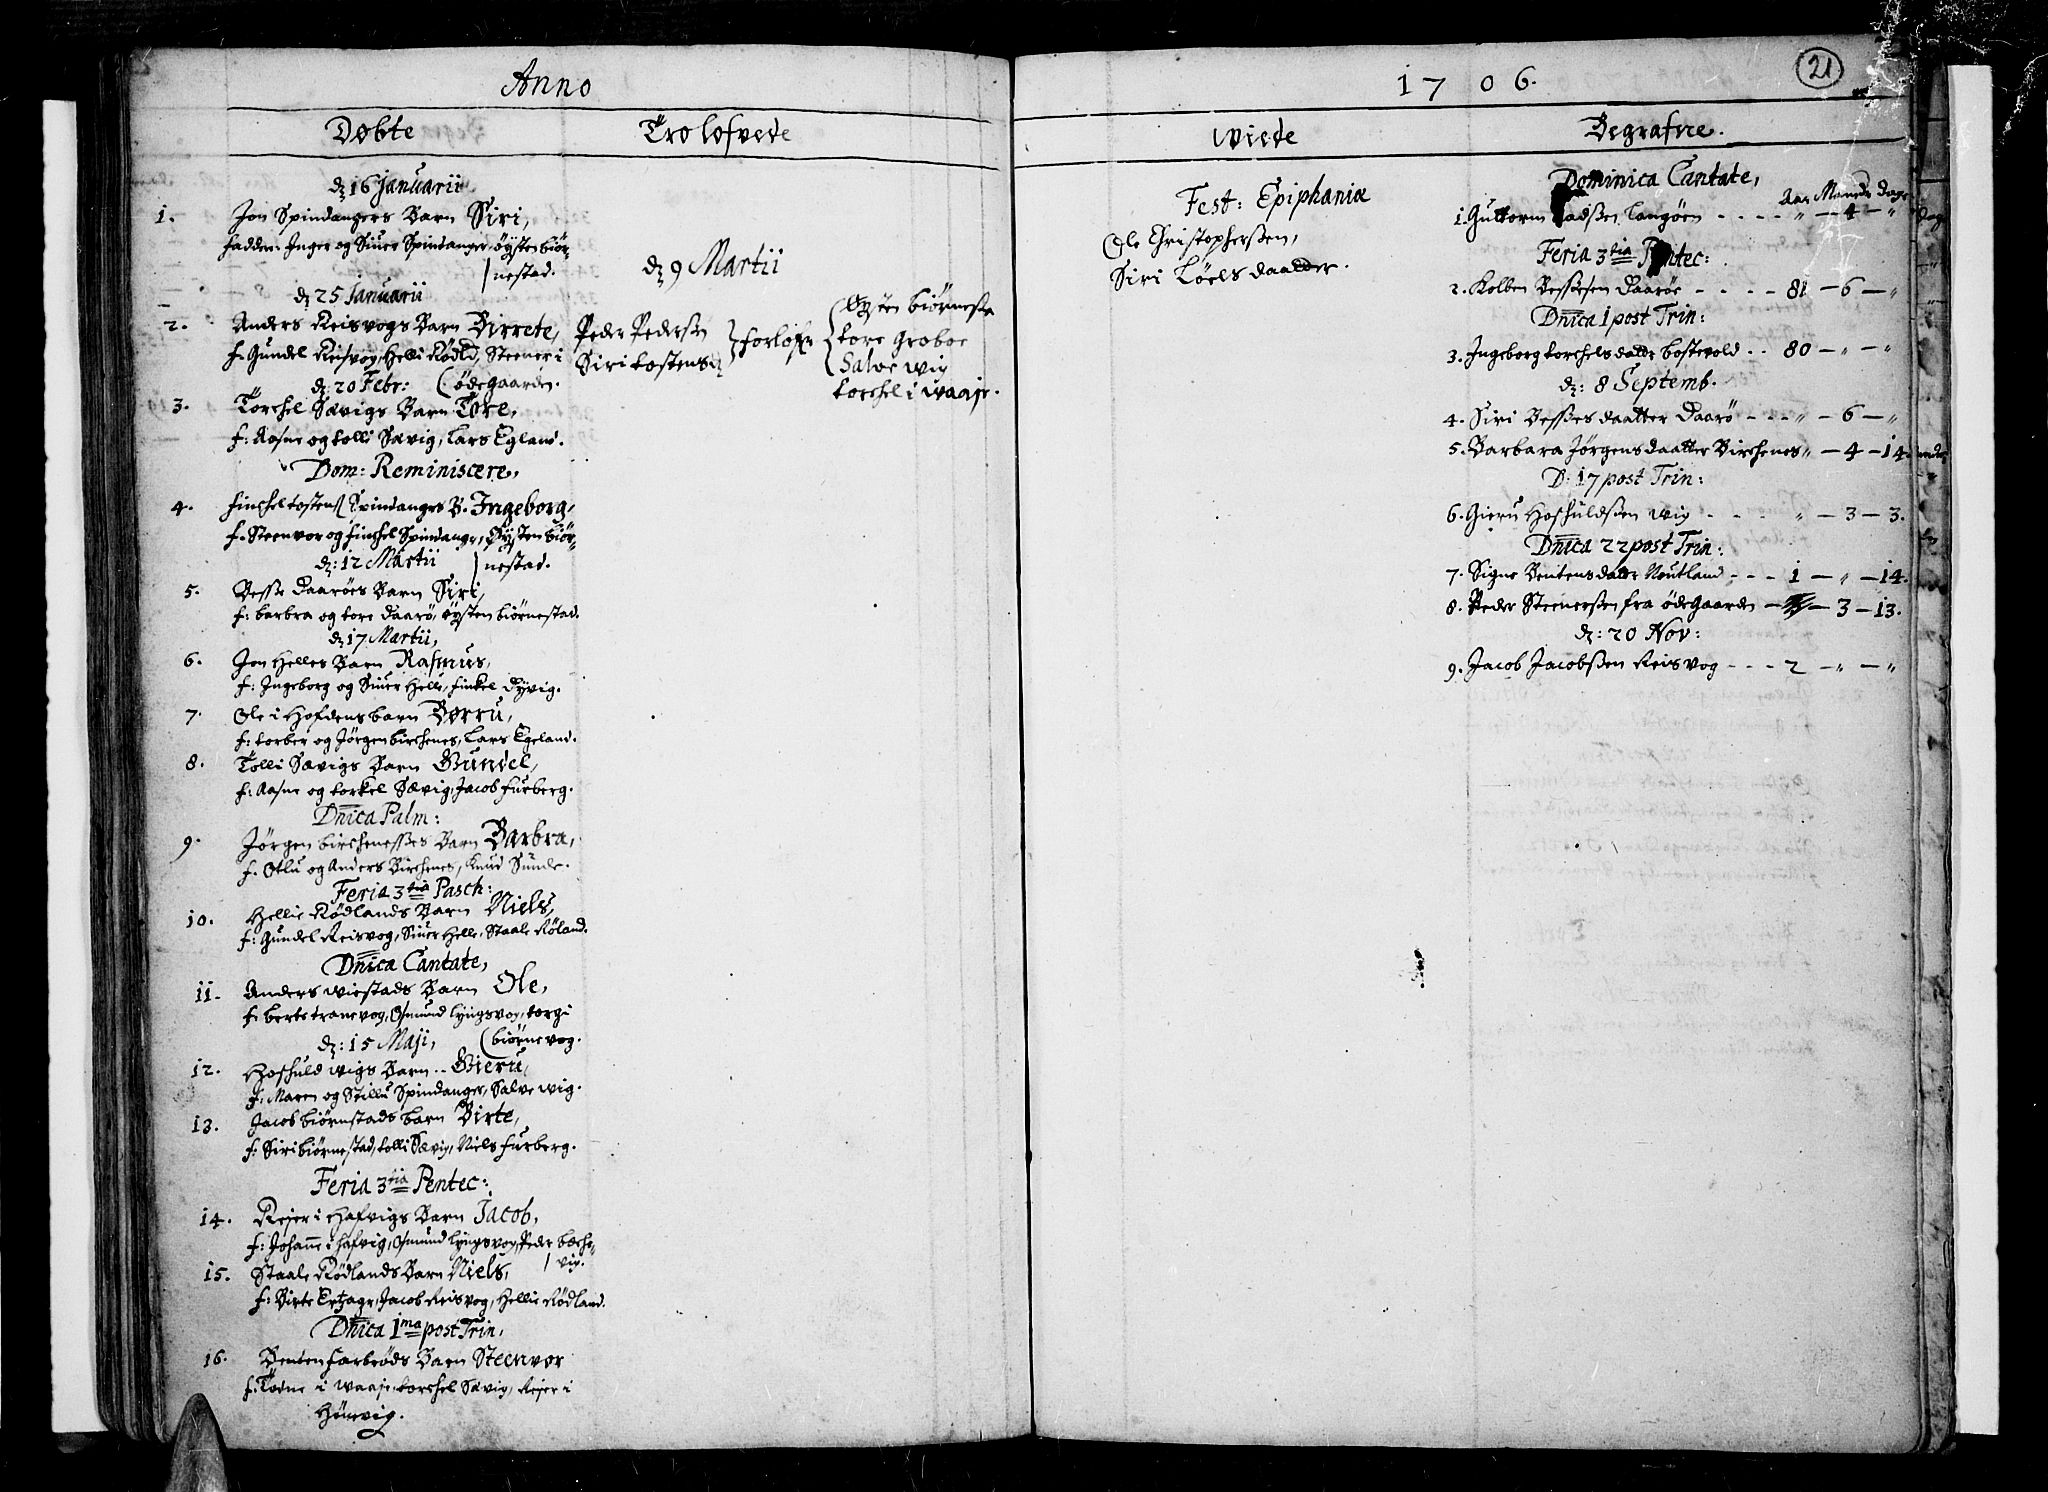 Anno
Døbte
Trolofvede
dʒ 16 Januarii
1. Jon Spindangers Barn Siri,
fadder: Inger og Siuer Spindanger, øysten biør-
nestad.
dʒ 25 Januarii
2. Anders Reisvogs Barn Birrete,
f: Gundel Reisvog, Helli Rødld, Steener i
(ødegaarden.
dʒ 20 Febr:
3. Torchel Sævigs Barn Tore,
f: Aasne og tolli Sævig, Lars Egland.
Dom: Reminiscere,
4. finchel tostens Spindangers B. Ingeborg,
f. Steenvor og finchel Spindanger, Øysten biør-
nestad.
dʒ: 12 Martii
5. Besse Daarøes Barn Siri,
f: barbra og tore Daarø, øysten biørnestad.
dʒ 17 Martii,
6. Jon Helles Barn Rasmus,
f: Ingeborg og Siuer Helle, finkel Dyvig.
7. Ole i Hofdens barn Børru,
f: torber og Jørgen birchenes, Lars Egeland.
8. Tolli Sævigs Barn Gundel,
f: Aasne og torkel Sævig, Jacob furberg.
Dnica Palm:
9. Jørgen birchenesses Barn Barbra,
f. Otlu og Anders Birchenes, Knud Sunde.
Feria 3tia Pasch:
10. Hellie Rødlands Barn Niels,
f: Gundel Reisvog, Siuer Helle, Staale Røland.
Dnica Cantate,
11. Anders wiestads Barn Ole,
f: berte tranevog, Osmund lyngsvog, torgi
(biørnevog.
dʒ: 15 Maji,
12. Hoschuld wigs Barn .. Gieru,
f: Maren og Stillu Spindanger, Salve wig.
13. Jacob biørnstads barn Birte,
f: Siri biørnestad, tolli Sævig, Niels furberg.
Feria 3tia Pentec:
14. Rejer i Hafvigs Barn Jacob,
f: Johane i hafvig, Osmund lyngsvog, Peder bæche-
vig.
15. Staale Rødlands Barn Niels,
f: Birte Ertzagr, Jacob Reisvog, Hellie Rødland.
Dnica 1ma post Trin,
16. Benten farbrøds Barn Steenvor
f: Todne i waaje, torchel Sævig, Rejer i
Hønevig.
dʒ 9 Martii
Peder Pedersen
Siri tostensd
forlofr
Øysten biørnesta
tore Groboe
Salve wig
torchel i waaje.
1706.
21
Wiede
Begrafne.
Fest: Epiphaniæ
Ole Christophersen,
Siri Løelsdaatter.
Dominica Cantate,
Aar Maaneder Dage
1. Guttorm Langøen - - - - " - 4 - "
Feria 3tia Pentec:
2. Kolben Bessesen Daarøe - - - - 81 - 6 - "
Dnica 1 post Trin:
3. Ingeborg torchelsdattr bostevold . . 80 - " - "
dʒ: 8 Septemb.
4. Siri Bessesdaatter Daarø - - - - " - 6 - "
5. Barbara Jørgensdaatter Birchenes " - 4 - 14.
D: 17 post Trin:
6. Gieru Hoschuldsen wig - - - - " - 3 - 3.
Dnica 22 post Trin:
7. Signe Bentensdattr Noutland - - - 1 - " - 14.
8. Peder Steenersen fra ødegaarden - - 3 - 13.
dʒ: 20 Nov:
9. Jacob Jacobsen Reisvog - - - 2 - " - "